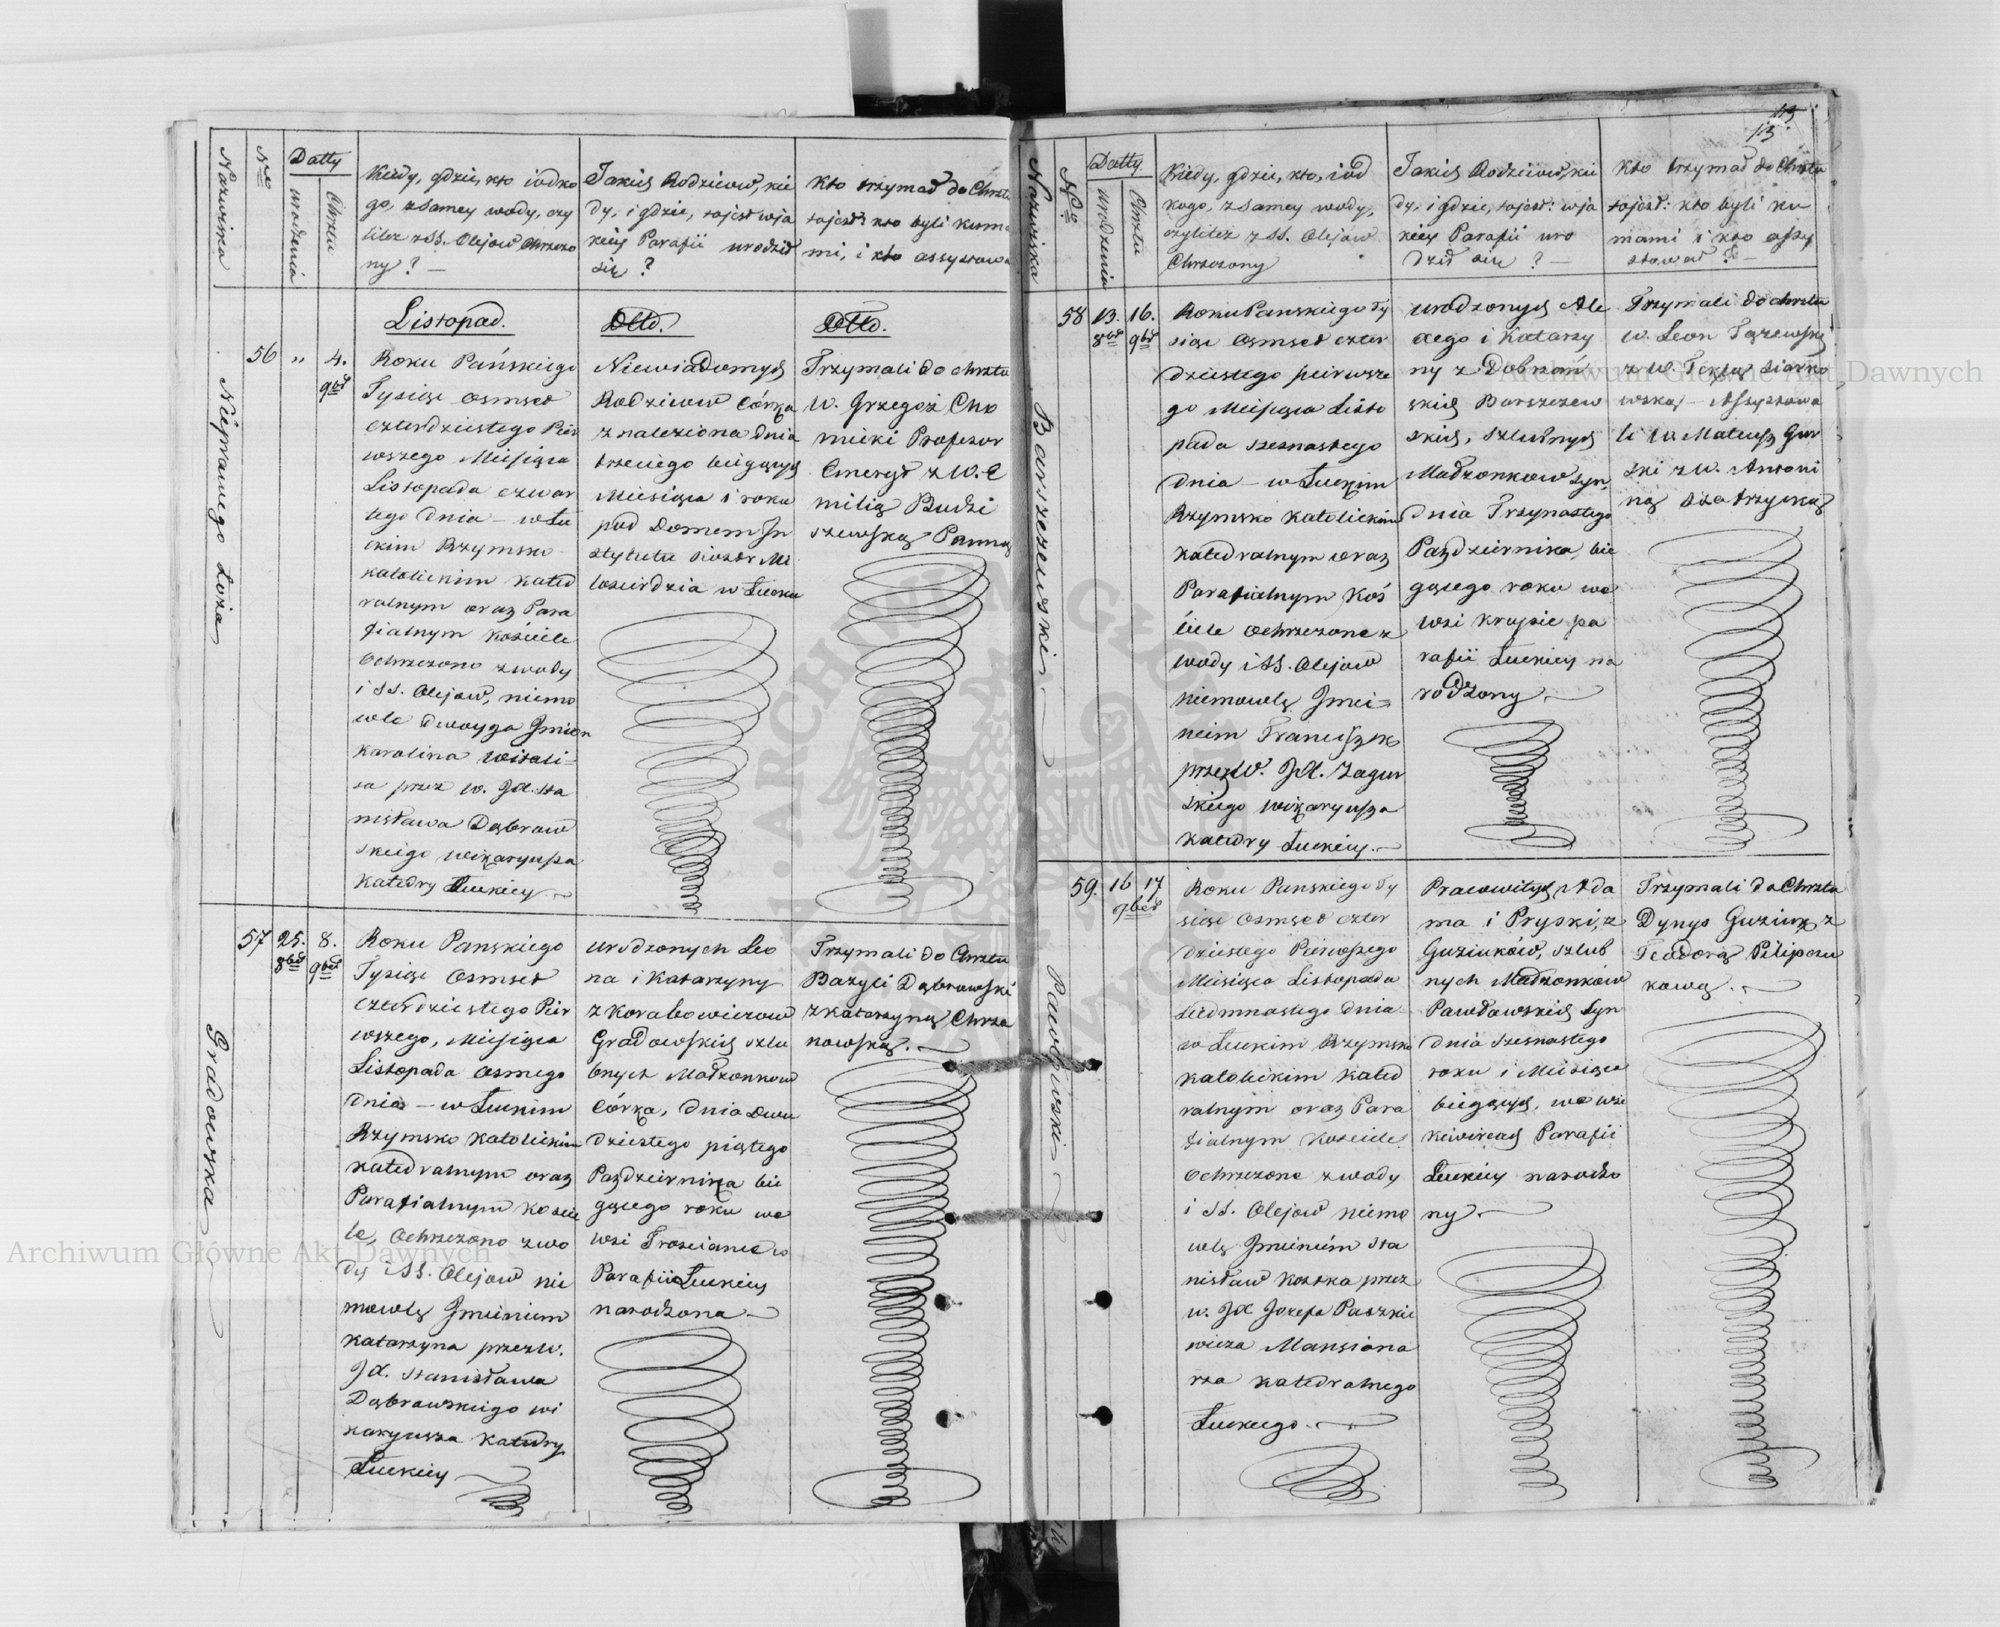 Nazwiska
Nro
Datty
urodzenia
Chrztu
Kiedy, gdzie, kto i od ko
go, z samey wody, czy
liteż z SS. Olejow Chrzczo
ny? —
Jakich Rodzicow, kie
dy, i gdzie, to jest w ja
kiey Parafii urodził
się?
Kto trzymał do Chrztu
to jest: kto byli kuma
mi, i kto assystowa
Listopad.
Dtto.
Dtto.
Nieprawego Łoża
56 „ 4.
9bra
Roku Pańskiego
Tysiąc osmset
czterdziestego Pier
wszego Miesiąca
Listopada czwar
tego dnia – w Łu
ckim Rzymsko
katolickim kated
ralnym oraz Para
fialnym kościele
ochrzczono z wody
i SS. Olejow, niemo
wle dwoyga Jmion
Karolina Witali-
sa przez W. JX. Sta
nisława Dąbrow
skiego wikaryusza
Katedry Łuckiey
Niewiadomych
Rodzicow córka
znaleziona dnia
trzeciego bieżących
Miesiąca i roku
pod Domem Jn
stytutu Siostr Mi
łosierdzia w Łucku
Trzymali do chrztu
W. Grzegoż Cho
micki Profesor
Emeryt z W. E
milią Budzi
szewską Panną
Gradowska
57 25. 8.
8bra 9bra
Roku Panskiego
Tysiąc Osmset
czterdziestego Pier
wszego, Miesiąca
Listopada osmego
dnia – w Łuckim
Rzymsko Katolickim
katedralnym oraz
Parafialnym koście
le, ochrzczono z wo
dy i SS. Olejow nie
mowlę Jmieniem
Katarzyna przez W.
JX. Stanisława
Dąbrowskiego wi
karyusza Katedry
Łuckiey
urodzonych Leo
na i Katarzyny
z Korabowiczow
Gradowskich szlu
bnych Małżonkow
Córka, dnia dwu
dziestego piątego
Pazdziernika bie
żącego roku we
wsi Trościance
Parafii Łuckiey
narodzona
Trzymali do Chrztu
Bazyli Dąbrowski
z Katarzyną Chrza
nowską.
113
113
Nazwiska
Nro
Datty
urodzenia
Chrztu
Kiedy, gdzie, kto, i od
kogo, z samey wody,
czyliteż z SS. Olejow
Chrzczony
Jakich Rodziców, kie
dy, i gdzie, to jest: w ja
kiey Parafii uro
dził się? —
Kto trzymał do Chrztu
to jest: kto byli ku
mami i kto assy
stował? —
Barszczewski
58 13. 16.
8bra 9bra
Roku Panskiego Ty
siąc osmset czter
dziestego pierwsze
go Miesiąca Listo
pada szesnastego
dnia – w Łuckim
Rzymsko Katolickim
katedralnym oraz
Parafialnym Koś
ciele ochrzczone z
wody i SS. Olejow
niemowlę Jmie=
niem Franciszek
przez W. JX. Zagur
skiego wikaryusza
katedry Łuckiey. —
urodzonych Ale
xego i Katarzy
ny z Dobrzań
skich Barszczew
skich, szlubnych
Małżonkow syn,
dnia Trzynastego
Pazdziernika, bie
żącego roku we
wsi Krupie pa
rafii Łuckiey na
rodzony
Trzymali do chrztu
W. Leon
z W. Teklą Siarko
wską – Assystowa
li W. Mateusz Gur
ski z W. Antoni
ną
Pawłowski
59. 16 17
9bra
Roku Panskiego Ty
siąc osmset czter
dziestego Pierwszego
Miesiąca Listopada
siedmnastego dnia
w Łuckim Rzymsko
katolickim kated
ralnym oraz Para
fialnym Kościele
ochrzczone z wody
i SS. Olejow niemo
wlę Jmieniem Sta
nisław Kostka przez
W. JX Jozefa Paszkie
wicza Mansiona
rza katedralnego
Łuckiego. —
Pracowitych Ada
ma i Pryski, z
Guziuków, szlub
nych Małżonków
Pawłowskich syn
dnia szesnastego
roku i Miesiąca
bieżących, we wsi
Parafii
Łuckiey narodzo
ny.
Trzymali do Chrztu
Dynys Guziuk z
Teodorą Pilipczu
kową.
Archiwum Główne Akt Dawnych
Archiwum Główne Akt Dawnych